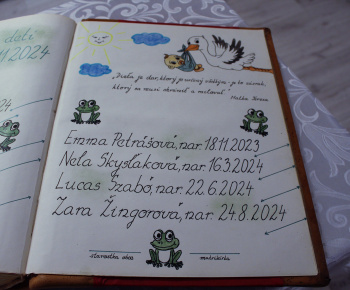 dali
11.2024
24.
„Dieťa je dar, ktorý je
ktorý sa musí chrániť a milovať."
Matka Tereza
Emma Petrášová, nar. 18.11.2023
Nela Skyslaková, nar. 16.3.2024
Lucas Szabó, nar. 22.6.2024
Zara Žingorová, nar. 24.8.2024
starostka obce
matrikárka